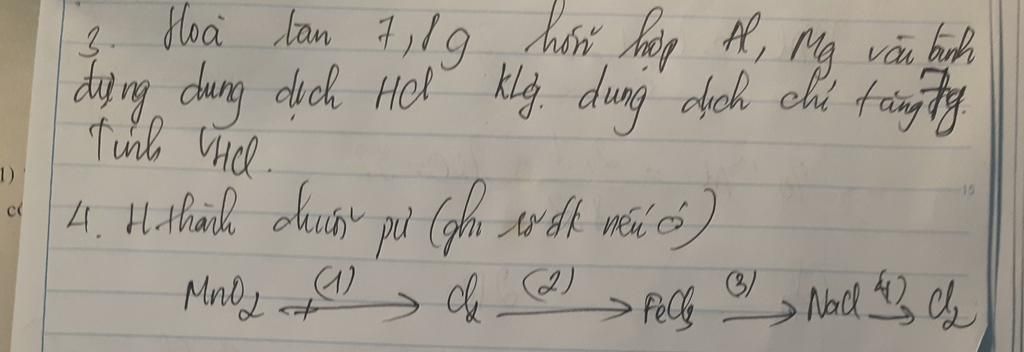 3. Hoà tan 7,8g hỗn hợp Al, Mg vào bình
đựng dung dịch HCl klg. dung dịch chỉ tăng 7g.
Tính VHCl.
1)
4. H.thành chuỗi pứ (ghi rõ đk nếu có)
MnO2 (1)→ Cl2 (2)→ FeCl3 (3)→ NaCl (4)→ Cl2